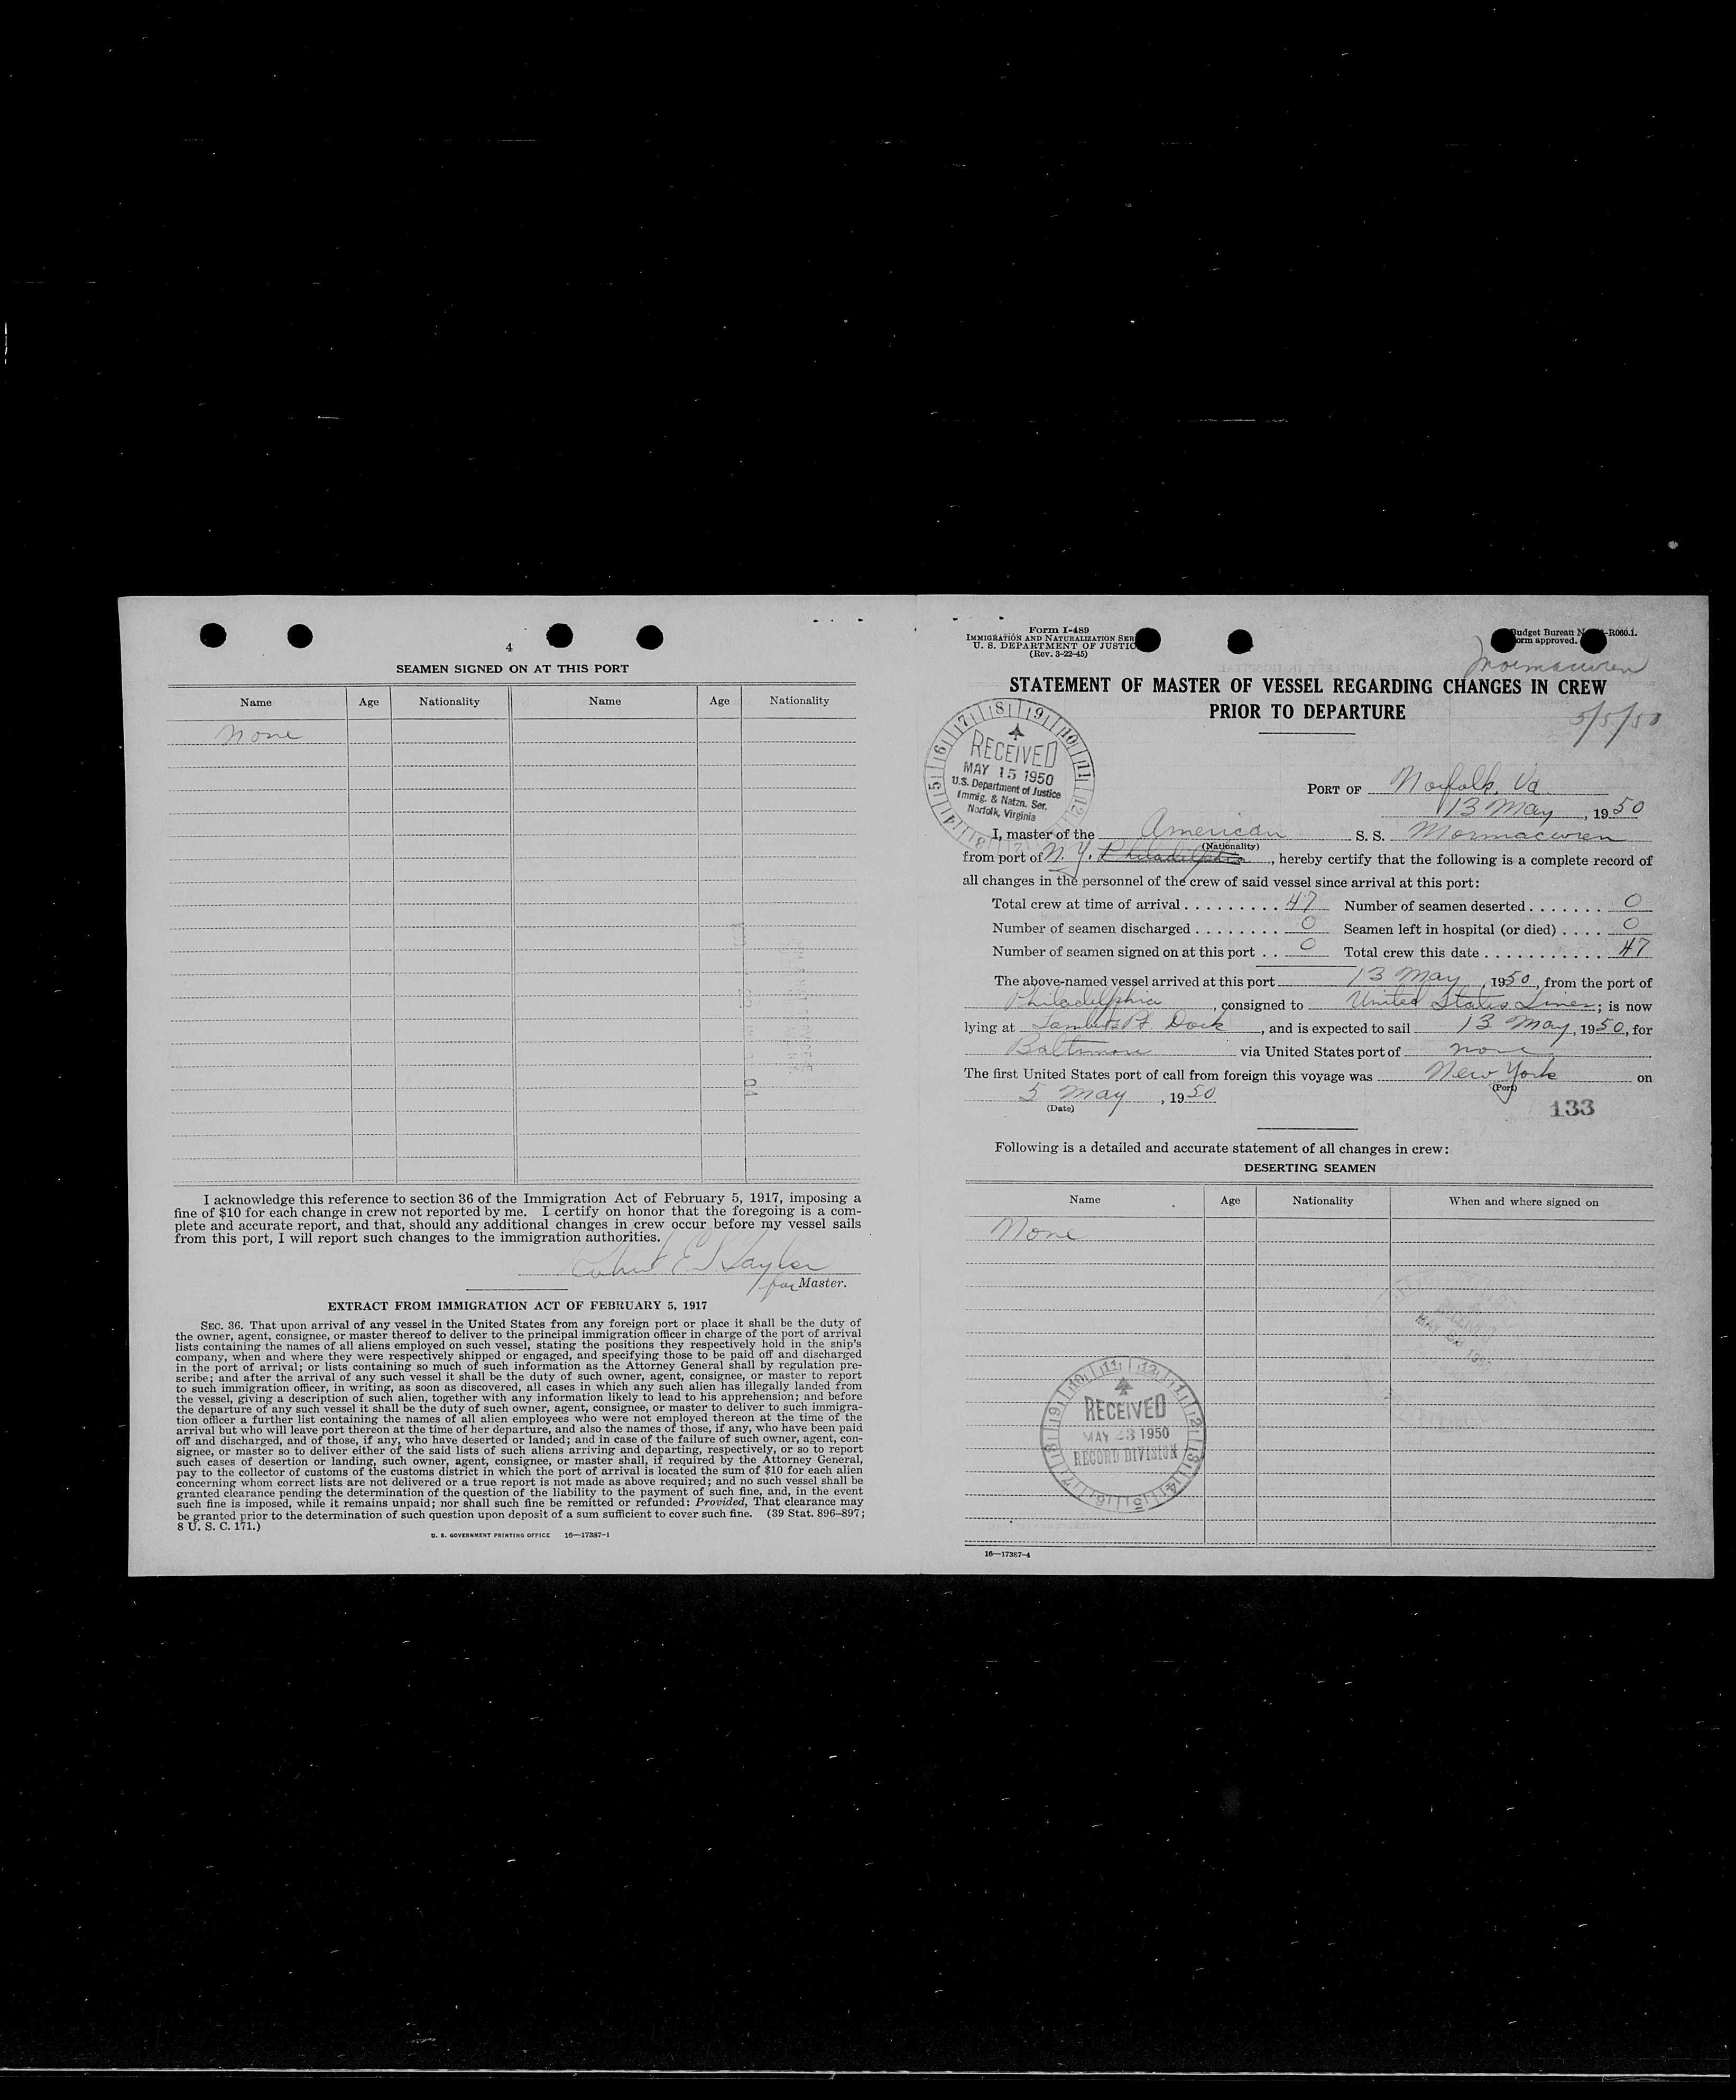 4
SEAMEN SIGNED ON AT THIS PORT
Name Age Nationality Name Age Nationality
None
I acknowledge this reference to section 36 of the Immigration Act of February 5, 1917, imposing a
fine of $10 for each change in crew not reported by me. I certify on honor that the foregoing is a com-
plete and accurate report, and that, should any additional changes in crew occur before my vessel sails
from this port, I will report such changes to the immigration authorities.
for Master.
EXTRACT FROM IMMIGRATION ACT OF FEBRUARY 5, 1917
SEC. 36. That upon arrival of any vessel in the United States from any foreign port or place it shall be the duty of
the owner, agent, consignee, or master thereof to deliver to the principal immigration officer in charge of the port of arrival
lists containing the names of all aliens employed on such vessel, stating the positions they respectively hold in the ship's
company, when and where they were respectively shipped or engaged, and specifying those to be paid off and discharged
in the port of arrival; or lists containing so much of such information as the Attorney General shall by regulation pre-
scribe; and after the arrival of any such vessel it shall be the duty of such owner, agent, consignee, or master to report
to such immigration officer, in writing, as soon as discovered, all cases in which any such alien has illegally landed from
the vessel, giving a description of such alien, together with any information likely to lead to his apprehension; and before
the departure of any such vessel it shall be the duty of such owner, agent, consignee, or master to deliver to such immigra-
tion officer a further list containing the names of all alien employees who were not employed thereon at the time of the
arrival but who will leave port thereon at the time of her departure, and also the names of those, if any, who have been paid
off and discharged, and of those, if any, who have deserted or landed; and in case of the failure of such owner, agent, con-
signee, or master so to deliver either of the said lists of such aliens arriving and departing, respectively, or so to report
such cases of desertion or landing, such owner, agent, consignee, or master shall, if required by the Attorney General,
pay to the collector of customs of the customs district in which the port of arrival is located the sum of $10 for each alien
concerning whom correct lists are not delivered or a true report is not made as above required; and no such vessel shall be
granted clearance pending the determination of the question of the liability to the payment of such fine, and, in the event
such fine is imposed, while it remains unpaid; nor shall such fine be remitted or refunded: Provided, That clearance may
be granted prior to the determination of such question upon deposit of a sum sufficient to cover such fine. (39 Stat. 896–897;
8 U. S. C. 171.)
U. S. GOVERNMENT PRINTING OFFICE 16—17387-1
Form I-489
IMMIGRATION AND NATURALIZATION SER
U. S. DEPARTMENT OF JUSTIC
(Rev. 3-22-45)
Budget Bureau N -R060.1.
orm approved.
Mormacwren
STATEMENT OF MASTER OF VESSEL REGARDING CHANGES IN CREW
PRIOR TO DEPARTURE
5/5/50
RECEIVED
MAY 15 1950
U.S. Department of Justice
Immig. & Natzn. Ser.
Norfolk, Virginia
PORT OF Norfolk, Va.
13 May, 1950
I, master of the American S. S. Mormacwren
(Nationality)
from port of N. Y. Philadelphia, hereby certify that the following is a complete record of
all changes in the personnel of the crew of said vessel since arrival at this port:
Total crew at time of arrival . . . . . . . . . 47 Number of seamen deserted . . . . . . . 0
Number of seamen discharged . . . . . . . . 0 Seamen left in hospital (or died) . . . . 0
Number of seamen signed on at this port . . 0 Total crew this date . . . . . . . . . . . . 47
The above-named vessel arrived at this port 13 May, 1950, from the port of
Philadelphia, consigned to United States Lines; is now
lying at Lamberts Pt. Dock, and is expected to sail 13 May, 1950, for
Baltimore via United States port of none
The first United States port of call from foreign this voyage was New York on
(Port)
5 May, 1950
(Date)
133
Following is a detailed and accurate statement of all changes in crew:
DESERTING SEAMEN
Name Age Nationality When and where signed on
None
RECEIVED
MAY 23 1950
RECORD DIVISION
16—17387-4